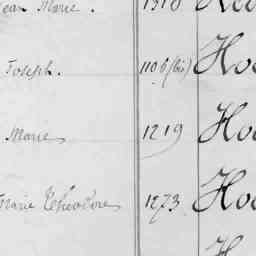 Jean Marie. 1318
Joseph. 1106 (bis) Ho
Marie 1219 Ho
Marie Théodore 1273 Ho